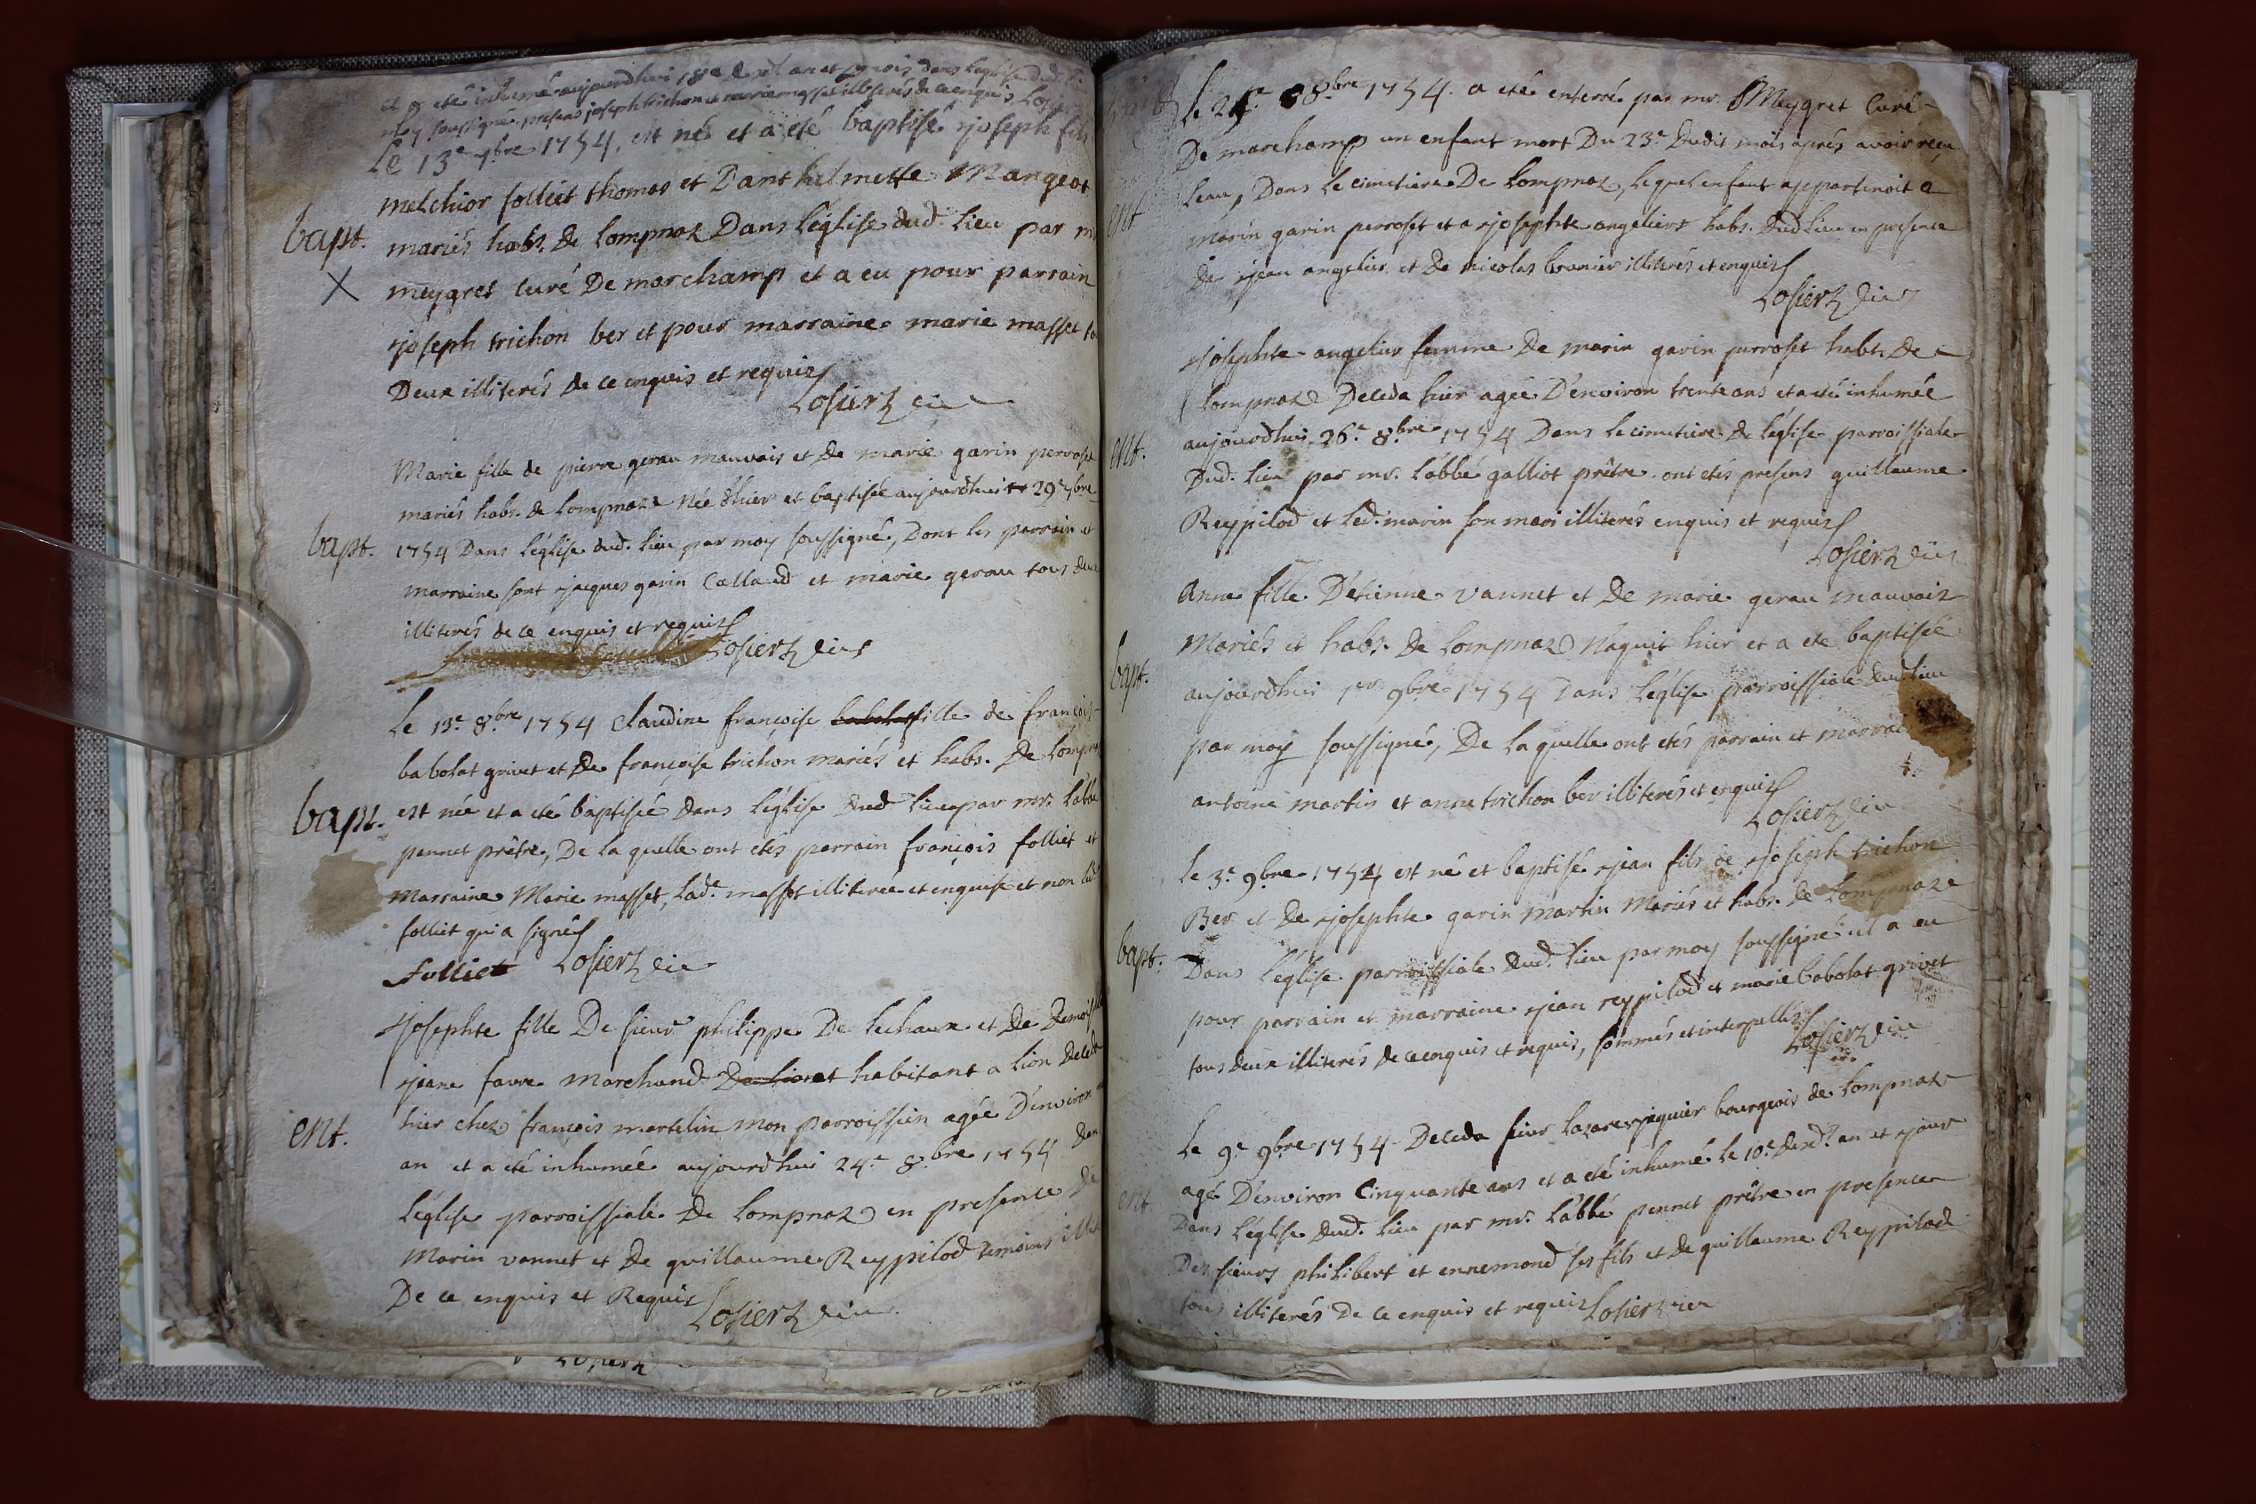 et a eté inhumé aujourd'hui 18e dud. an et mois dans l'eglise dud.
moy soussigné presens joseph trichon et marin masset illiterés de ce enquis Losierz
Le 13e 7bre 1754, est né et a eté baptisé joseph fils
melchior folliet thomas et D'anthelmette Mangeot
bapt.
mariés habs. De lompnaz Dans l'église dud. lieu par mr
meygret curé De marchamp et a eu pour parrain
joseph trichon ber et pour marraine marie masset to
Deux illiterés de ce enquis et requis
Losierz curé
Marie fille de pierre gerau mauvais et De marie garin perroset
mariés habs. de lompnaz née d'hier et baptisée aujourd'hui 29e 7bre
bapt.
1754 Dans l'église dud. lieu par moy soussigné, Dont les parrain et
marraine sont jacques garin Callaud et marie gerau tous deux
illiterés de ce enquis et requis
Losierz curé
Le 13e 8bre 1754 Claudine françoise fille de françois
babolat grivet et De françoise trichon mariés et habs. De lompn
bapt.
est née et a eté baptisée Dans l'église dud lieu par mr. l'abbé
pennet prêtre, De la quelle ont etés parrain françois folliet et
marraine Marie masset, lad. masset illiterée et enquise et non led
folliet qui a signé
folliet Losierz curé
josephte fille De sieur philippe De lechaux et De Demois
jeane favre marchand habitant a lion deceda
ent.
hier chez françois martelin mon parroissien agée D'environ
an et a eté inhumée aujourd'hui 24e 8bre 1754 dan
l'église parroissiale De lompnaz en presence De
Marin vannet et De guillaume Reypilod temoins illit
De ce enquis et Requis
Losierz curé
Losierz
le 24e 8bre 1754. a eté enterré par mr. Meygret Curé
De marchamp un enfant mort Du 23e Dudit mois après avoir reçu
l'eau, Dans le cimetiere De lompnaz, lequel enfant appartenoit a
ent
marin garin perroset et a josephte angelier habs. Dud lieu en presence
De jean angelier et De nicolas brunier illiterés et enquis
Losierz curé
josephte angelier femme De marin garin perroset habt. De
lompnaz Deceda hier agée D'environ trente ans et a eté inhumée
ent.
aujourd'hui 26e 8bre 1754 Dans le cimetiere De l'église parroissiale
Dud. lieu par mr. l'abbé galliot prêtre ont etés presens guillaume
Reypilod et led. marin son mari illiterés enquis et requis
Losierz curé
Anne fille D'étienne vannet et De marie gerau mauvais
Mariés et habs. De lompnaz Naquit hier et a eté baptisée
bapt.
aujourd'hui 1er 9bre 1754 Dans l'église parroissiale dud lieu
par moy soussigné, De la quelle ont etés parrain et marrai
antoine martin et anne trichon ber illiterés et enquis
Losierz curé
le 3e 9bre 1754 est né et baptisé jean fils de joseph trichon
Ber et de josephte garin martin Mariés et habs. de Lompnaz
bapt.
Dans l'église parroissiale dud. lieu par moy soussigné il a eu
pour parrain et marraine jean reypilod et marie babolat grivet
tous deux illiterés de ce enquis et requis, sommés et interpellés
Losierz curé
Le 9e 9bre 1754 Deceda sieur lazare jiquier bourgeois de lompnaz
agé D'environ Cinquante ans et a eté inhumé le 10e dud. an et jour
ent
Dans l'église dud. lieu par mr. l'abbé pennet prêtre en presence
Des sieurs philibert et ennemond ses fils et de guillaume Reypilod
tous illiterés De ce enquis et requis Losierz curé